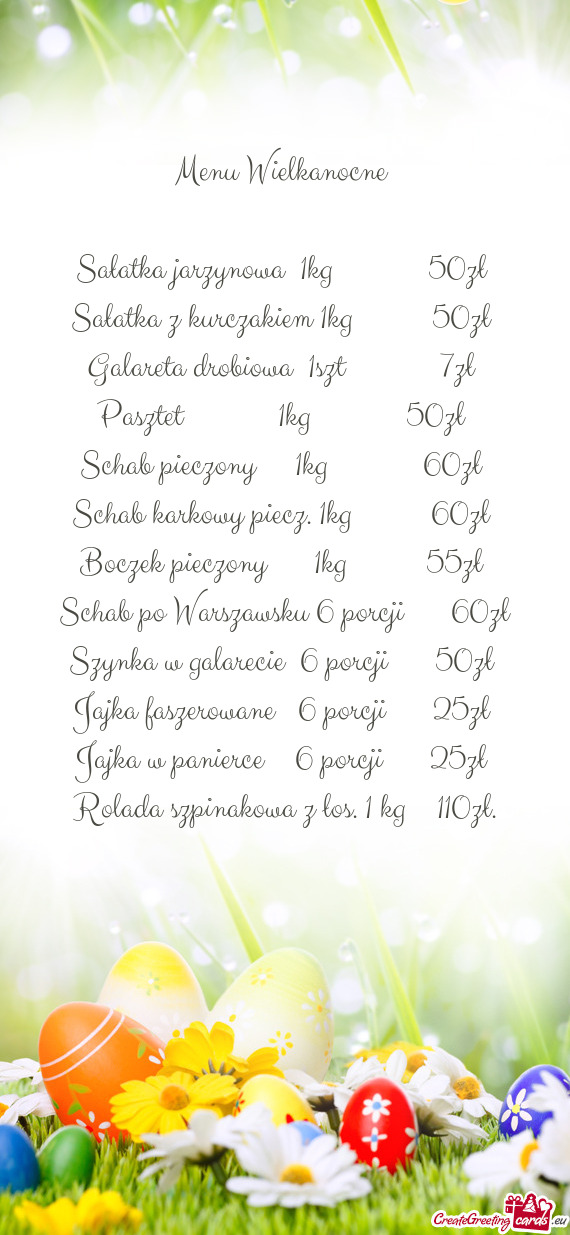 Menu Wielkanocne
Sałatka jarzynowa 1kg 50zł
Sałatka z kurczakiem 1kg 50zł
Galareta drobiowa 1szt 7zł
Pasztet 1kg 50zł
Schab pieczony 1kg 60zł
Schab karkowy piecz. 1kg 60zł
Boczek pieczony 1kg 55zł
Schab po Warszawsku 6 porcji 60zł
Szynka w galarecie 6 porcji 50zł
Jajka faszerowane 6 porcji 25zł
Jajka w panierce 6 porcji 25zł
Rolada szpinakowa z łos. 1 kg 110zł.
CreateGreetingcards.eu